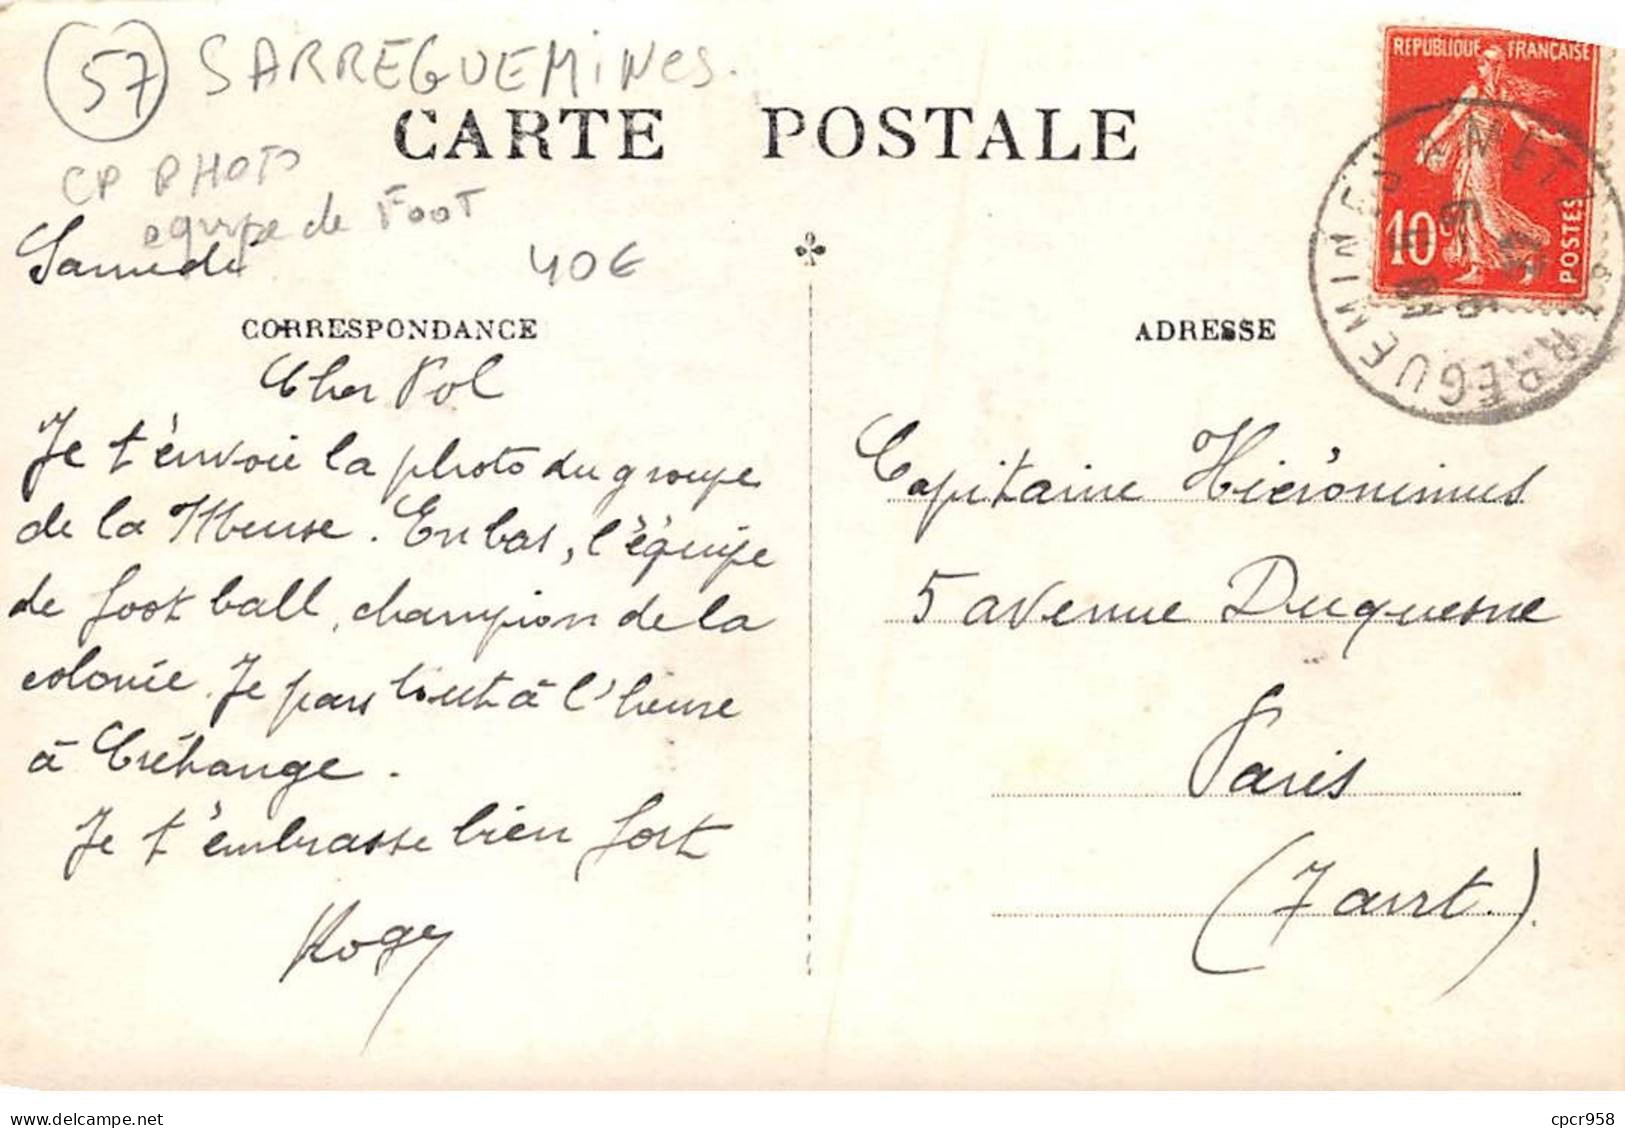 57 SARREGUEMINES.
CARTE POSTALE
CP PHOTO
equipe de FOOT
Samedi
40€
CORRESPONDANCE
Cher Pol
Je t'envoie la photo du groupe
de la Meuse. En bas, l'équipe
de foot ball, champion de la
colonie. Je pars tout à l'heure
à Créhange.
Je t'embrasse bien fort
Roger
REPUBLIQUE FRANÇAISE
10c
POSTES
METZ
SARREGUEMINES
ADRESSE
Capitaine Hiéronimus
5 avenue Duquesne
Paris
(7 arrt.)
www.delcampe.net
cpcr958